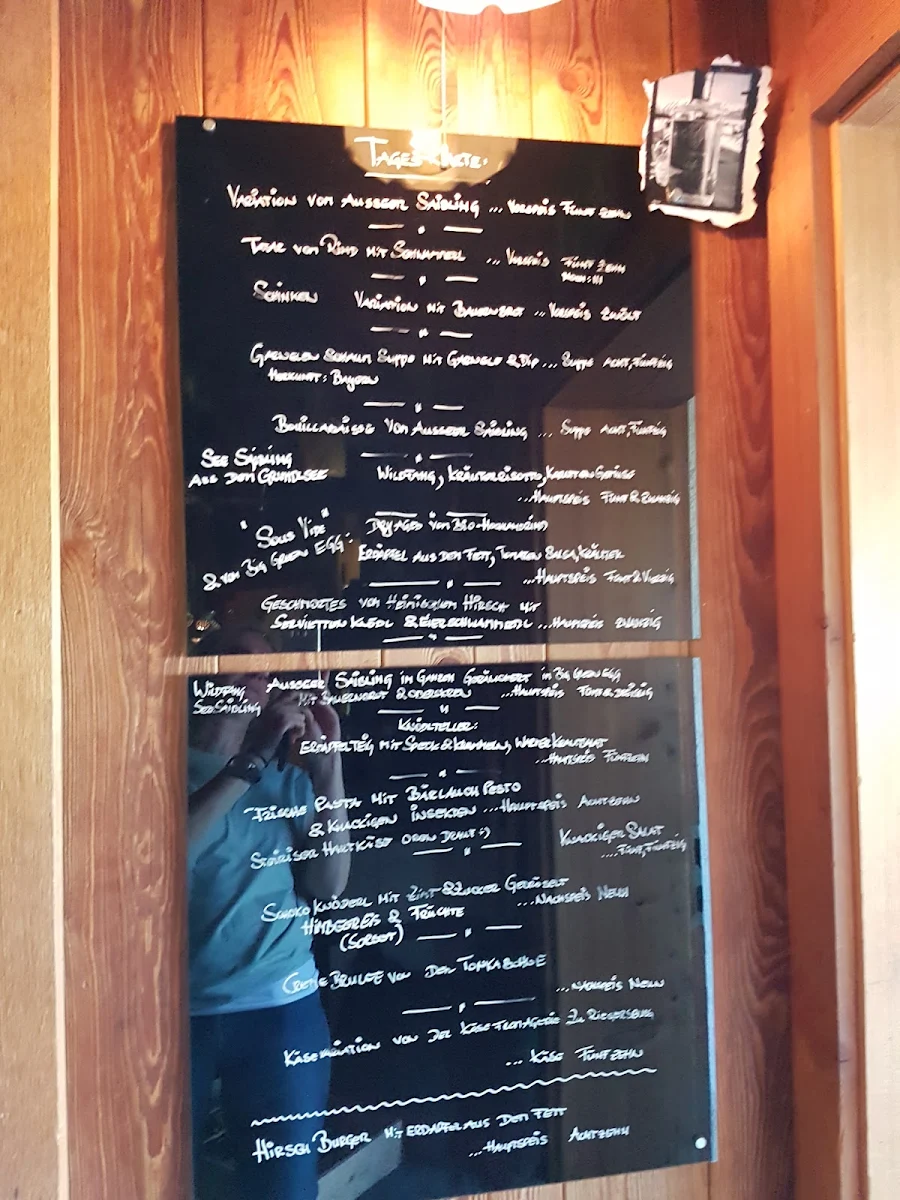 TAGESKARTE:
VARIATION VOM AUSSEER SAIBLING ... VORSPEIS FÜNFZEHN
TATAR VOM RIND MIT SCHWAMMERL ... VORSPEIS FÜNFZEHN
SCHINKEN VARIATION MIT BAUERNBROT ... VORSPEIS ZWÖLF
GARNELEN SCHAUM SUPPE MIT GARNELE & DIP ... SUPPE ACHT, FÜNFZIG
HERKUNFT: BAYERN
BOUILLABAISSE VOM AUSSEER SAIBLING ... SUPPE ACHT, FÜNFZIG
SEE SAIBLING
AUS DEM GRUNDLSEE WILDFANG, KRÄUTERRISOTTO, KAROTTEN GEMÜSE
...HAUPTSPEIS FÜNF & ZWANZIG
"SOUS VIDE" DRY AGED VOM BIO-HOCHLANDRIND
& VOM BIG GREEN EGG: ERDÄPFEL AUS DEM FETT, TOMATEN SALSA, KRÄUTER
...HAUPTSPEIS FÜNF & VIERZIG
GESCHMORTES VOM HEIMISCHEN HIRSCH MIT
SERVIETTEN KNÖDL & EIERSCHWAMMERL ...HAUPTSPEIS ZWANZIG
WILDFANG AUSSEER SAIBLING IM GANZEN GERÄUCHERT IM BIG GREEN EGG
SEESAIBLING MIT BAUERNBROT & OBERSKREN ...HAUPTSPEIS FÜNF & DREISSIG
KNÖDLTELLER:
ERDÄPFELTEIG MIT SPECK & GRAMMELN, WARMER KRAUTSALAT
...HAUPTSPEIS FÜNFZEHN
FRISCHE PASTA MIT BÄRLAUCH PESTO
& KNACKIGEN INSEKTEN ...HAUPTSPEIS ACHTZEHN
STEIRISCHER HARTKÄSE OBEN DRAUF :) KNACKIGER SALAT
....FÜNF, FÜNFZIG
SCHOKO KNÖDERL MIT ZIMT & ZUCKER GERÖSTET
HIMBEEREIS & FRÜCHTE ...NACHSPEIS NEUN
(SORBET)
CREME BRULEE VON DER TONKABOHNE
...NACHSPEIS NEUN
KÄSEVARIATION VON DER KÄSE FROMAGERIE ZU RIEGERSBURG
... KÄSE FÜNFZEHN
HIRSCH BURGER MIT ERDÄPFEL AUS DEM FETT
...HAUPTSPEIS ACHTZEHN